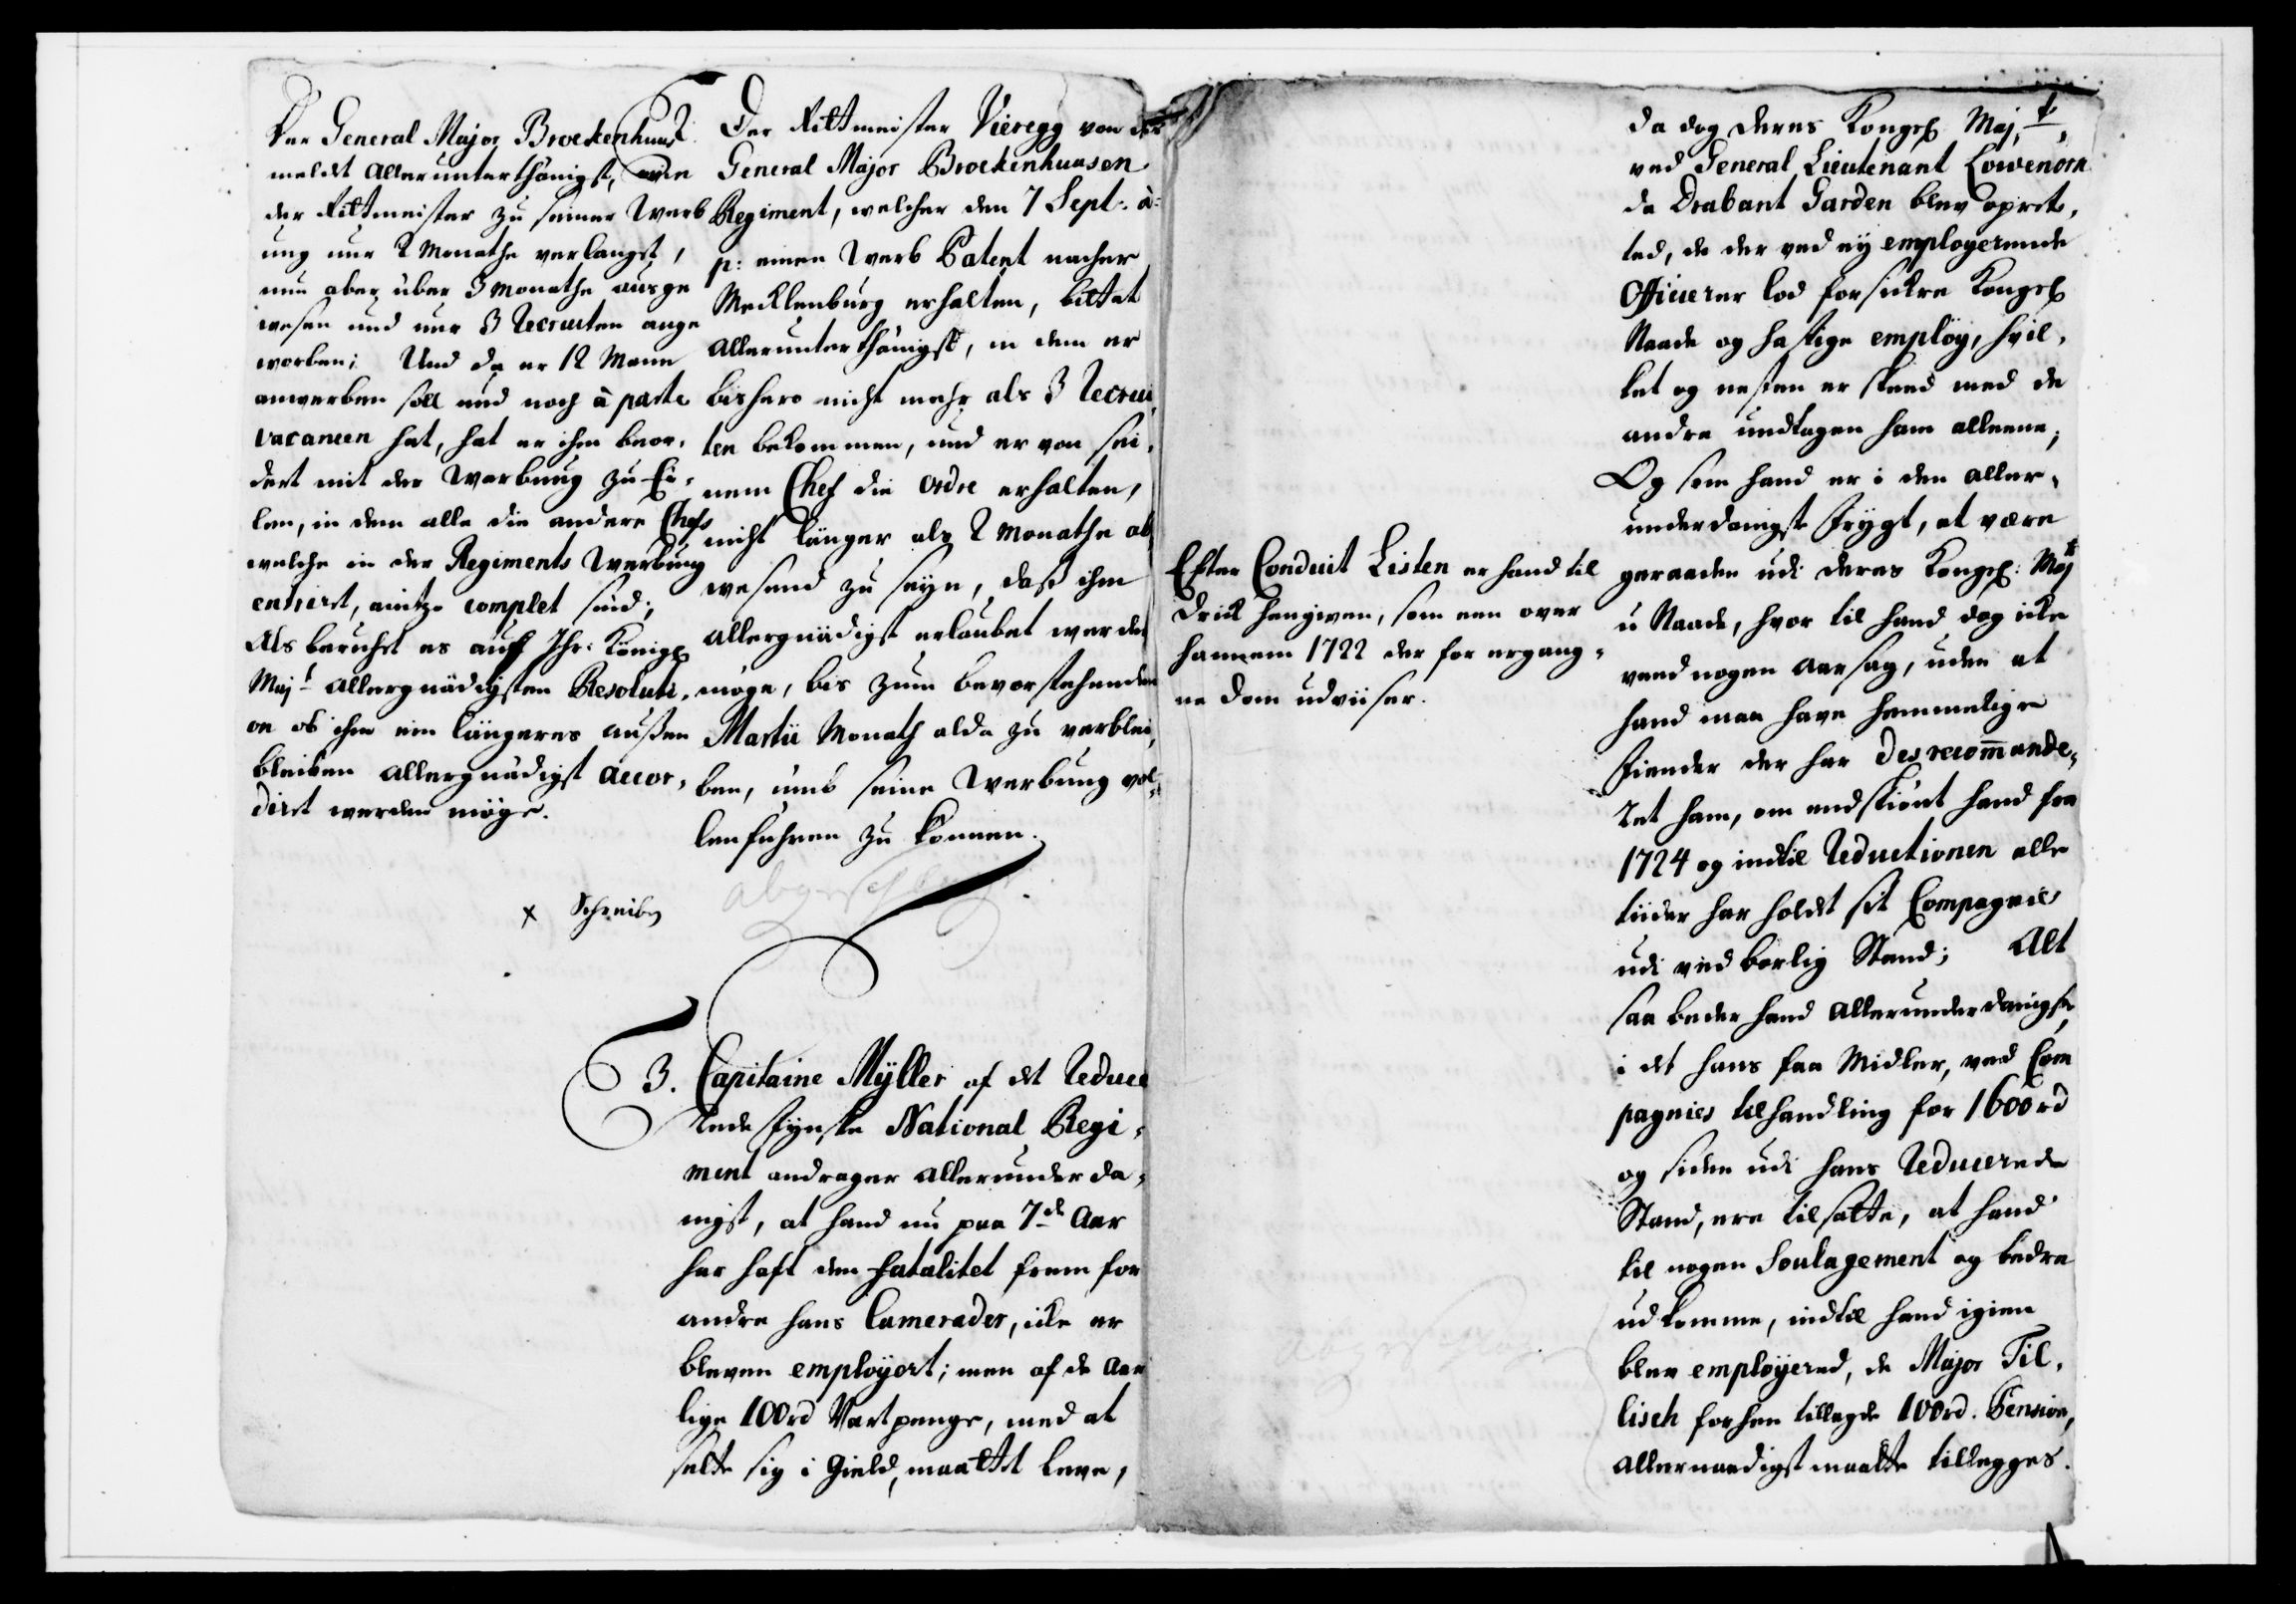 Der General Major Brockenhuus
meldet allerunterthänigst, wie
der Rittmeister zu seiner Werb
ung nur 2 Monathe verlangt,
nun aber über 3 Monathe ausge
wesen und nur 3 Recruten ange
worben; Und da er 12 Mann
anwerben soll und noch à parte
vacancen hat, hat er ihn beor-
dert mit der Werbung zu Ei-
len, in dem alle die andere Chefs
welche in der Regiments Werbung
entrirt, anitzo complet sind;
Als beruhet es auff Ihr: Königl
Majt allergnädigsten Resoluti-
on ob ihm ein längeres außen
bleiben allergnädigst accor-
dirt werden möge.
x Schreiben
Der Rittmeister Vieregg von des
General Major Brockenhuusen
Regiment, welcher den 7 Sept. a:
p: einen Werb Patent nacher
Mecklenburg erhalten, bittet
allerunterthänigst, in dem er
bishero nicht mehr als 3 Recru-
ten bekommen, und er von sei-
nem Chef die Ordre erhalten,
nicht länger als 2 Monathe ab
wesend zu seyn, daß ihm
allergnädigst erlaubet werden
möge, bis zum bevorstehenden
Martii Monath alda zu verblei-
ben, umb seine Werbung vol-
lenführen zu können.
abgeschlagen
3. Capitaine Mÿller af det Reduce
rede Fynske National Regi-
ment andrager allerunderda-
nigst, at hand nu paa 7de Aar
har haft den fatalitet frem for
andre hans Camerader, icke er
bleven employert; men af de Aar
lige 100rd Vartpenge, med at
sette sig i Gield, maattet leve,
Efter Conduit Listen er hand til
drick hengiven, som een over
ham em 1722 der for ergang-
ne dom udviiser.
da dog deres Kongel Majt,
ved General Lieutenant Löwenörn
da Drabant Garden blev opret-
ted, de der ved ey employerende
Officerer lod forsickre Kongel
Naade og hastige employ, hvil-
ket og nesten er skeed med de
andre undtagen ham alleene;
Og som hand er i den aller-
underdanigste Frygt, at være
geraaden udi deres Kongel: Majt
u Naade, hvor til hand dog icke
veed nogen aarsag, uden at
hand maa have hemmelige
Fiender der har desrecommande-
ret ham, om endskiønt hand fra
1724 og indtil Reductionen alle
tiider har holdt sit Compagnie
udi ved børlig Stand; Alt
saa beder hand allerunderdanigst,
i det hans faa Midler, ved Com
pagnies tilhandling for 1600rd
og siden udi hans Reducerede
Stand, ere tilsatte, at hand
til nogen Soulagement og bedre
udkomme, indtil hand igien
blev employered, de Major Til-
lisch forhen tillagde 100rd. Pension,
allernaadigst maatte tillegges.